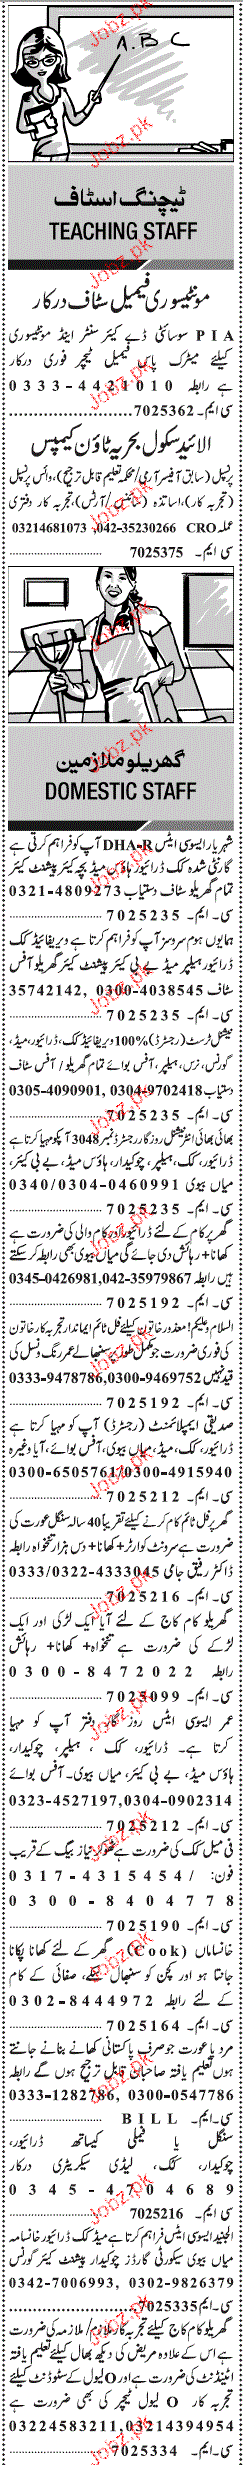 A.B.C
ٹیچنگ اسٹاف
TEACHING STAFF
مونٹیسوری فیمیل سٹاف درکار
PIA سوسائٹی ڈے کیئر سنٹر اینڈ مونٹیسوری
کیلئے میٹرک پاس فیمیل ٹیچر فوری درکار
ہے رابطہ 0333-4421010
سی ایم۔ 7025362
الائیڈ سکول بحریہ ٹاؤن کیمپس
پرنسپل (سابق آفیسر آرمی/محکمہ تعلیم قابل ترجیح)، وائس پرنسپل
(تجربہ کار)، اساتذہ (سائنس/آرٹس)، تجربہ کار دفتری
عملہ CRO 042-35230266, 03214681073
سی۔ایم۔ 7025375
گھریلو ملازمین
DOMESTIC STAFF
شہریار ایسوسی ایٹس DHA-R آپ کو فراہم کرتی ہے
گارنٹی شدہ کک ڈرائیور ہاؤس میڈ بچہ کیئر پیشنٹ کیئر
تمام گھریلو سٹاف دستیاب 0321-4809273
سی۔ایم۔ 7025235
ہمایوں ہوم سروسز آپ کو فراہم کرتا ہے ویریفائیڈ کک
ڈرائیور ہیلپر میڈ بے بی کیئر پیشنٹ کیئر گھریلو آفس
سٹاف 0300-4038545, 35742142
سی۔ایم۔ 7025235
نیشنل ٹرسٹ (رجسٹرڈ) 100% ویریفائیڈ کک، ڈرائیور، میڈ،
گورنس، نرس، ہیلپر، آفس بوائے تمام گھریلو/آفس سٹاف
دستیاب 0304-9702418, 0305-4090901
سی۔ایم۔ 7025235
بھائی بھائی انٹرنیشنل روزگار رجسٹرڈ نمبر 3048 آپکو مہیا کرتا ہے
ڈرائیور، کک، ہیلپر، چوکیدار، ہاؤس میڈ، بے بی کیئر،
میاں بیوی 0340/0304-0460991
سی۔ایم۔ 7025235
گھر پر کام کے لئے ڈرائیور اور کام والی کی ضرورت ہے
کھانا+ رہائش دی جائے گی میاں بیوی بھی رابطہ کر سکتے
ہیں رابطہ 042-35979867, 0345-0426981
سی۔ایم۔ 7025192
السلام وعلیکم! معذور خاتون کیلئے فل ٹائم ایماندار تجربہ کار خاتون
کی فوری ضرورت جو مکمل طور پر سنبھالے عمر رنگ نسل کی
قید نہیں 0300-9469752, 0333-9478786
سی۔ایم۔ 7025192
صدیقی ایمپلائمنٹ (رجسٹرڈ) آپ کو مہیا کرتا ہے
ڈرائیور، کک، میڈ، میاں بیوی، آفس بوائے، آیا وغیرہ
0300-6505761/0300-4915940
سی۔ایم۔ 7025212
گھر پر فل ٹائم کام کرنے کیلئے تقریباً 40 سالہ سنگل عورت کی
ضرورت ہے سرونٹ کوارٹر+ کھانا+ دس ہزار تنخواہ رابطہ
ڈاکٹر رفیق جامی 0333/0322-4333045
سی۔ایم۔ 7025216
گھریلو کام کاج کے لئے آیا ایک لڑکی اور ایک
لڑکے کی ضرورت ہے تنخواہ+ کھانا+ رہائش
رابطہ 0300-8472022
سی۔ایم۔ 7025099
عمر ایسوسی ایٹس روزگار دفتر آپ کو مہیا
کرتا ہے۔ ڈرائیور، کک، ہیلپر، چوکیدار،
ہاؤس میڈ، بے بی کیئر، میاں بیوی۔ آفس بوائے
0323-4527197, 0304-0902314
سی۔ایم۔ 7025212
فی میل کک کی ضرورت ہے ٹھوکر نیاز بیگ کے قریب
فون: 0317-4315454/
0300-8404778
سی۔ایم۔ 7025190
خانساماں (Cook) گھر کے لئے کھانا پکانا
جانتا ہو اور کچن کو سنبھال سکے، صفائی کے کام
کے لئے رابطہ 0302-8444972
سی۔ایم۔ 7025164
مرد یا عورت جو صرف پاکستانی کھانے بنانے جانتے
ہوں تعلیم یافتہ صاحبان قابل ترجیح ہوں گے رابطہ
0333-1282786, 0300-0547786
سی۔ایم۔ BILL
سنگل یا فیملی کیساتھ ڈرائیور،
چوکیدار، کک، لیڈی سیکریٹری درکار
0345-4704689
سی۔ایم۔ 7025216
الجنید ایسوسی ایٹس فراہم کرتا ہے میڈ کک ڈرائیور خانسامہ
میاں بیوی سیکورٹی گارڈز چوکیدار پیشنٹ کیئر گورنس
0342-7006993, 0302-9826379
سی۔ایم 7025335
گھریلو کام کاج کیلئے تجربہ کار ملازم/ملازمہ کی ضرورت
ہے اس کے علاوہ مریض کی دیکھ بھال کیلئے تعلیم یافتہ
اٹینڈنٹ کی ضرورت ہے اور O لیول کے سٹوڈنٹ کیلئے
تجربہ کار O لیول ٹیچر کی بھی ضرورت ہے
03224583211, 03214394954
سی۔ایم۔ 7025334